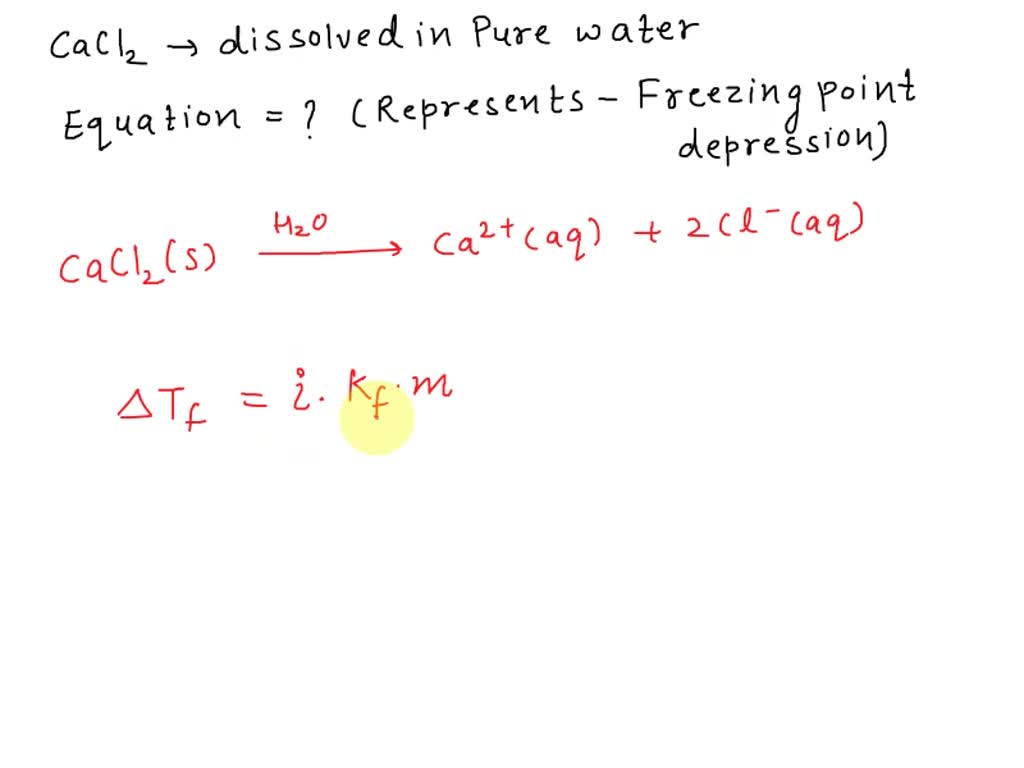 CaCl₂ → dissolved in Pure water
Equation = ? (Represents - Freezing point
depression)
CaCl₂(s) H₂O ⟶ Ca²⁺(aq) + 2Cl⁻(aq)
ΔT_f = i. K_f . m